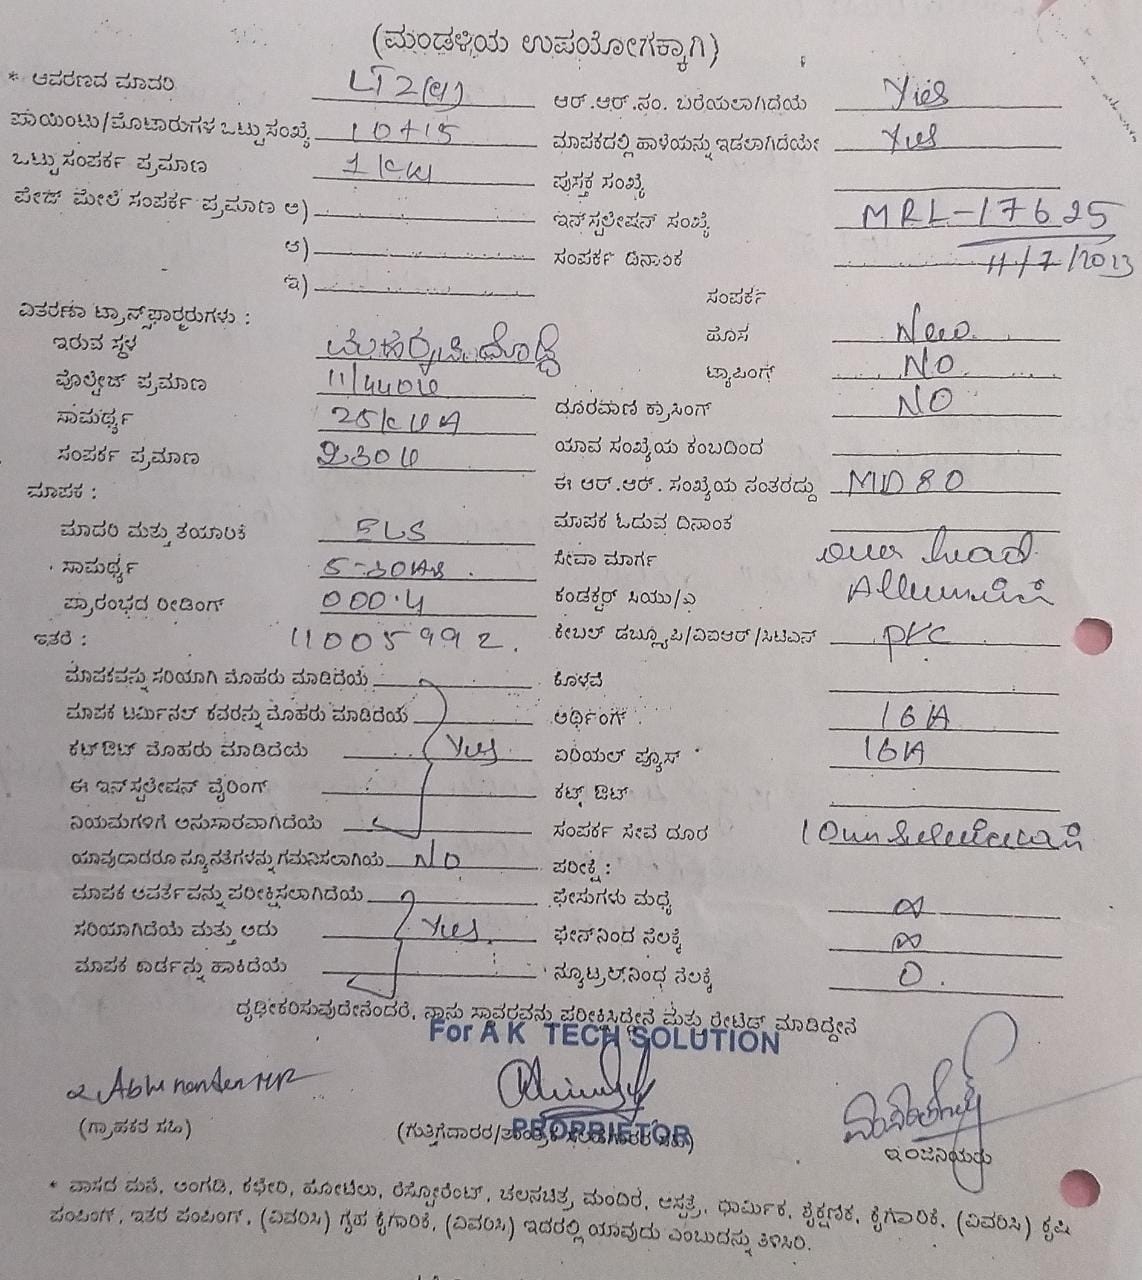 (ಮಂಡಳಿಯ ಉಪಯೋಗಕ್ಕಾಗಿ)
* ಆವರಣದ ಮಾದರಿ LT2(a) ಆರ್.ಆರ್.ನಂ. ಬರೆಯಲಾಗಿದೆಯೆ Yes
ಪಾಯಿಂಟು/ಮೋಟಾರುಗಳ ಒಟ್ಟು ಸಂಖ್ಯೆ 10+15 ಮಾಪಕದಲ್ಲಿ ಹಾಳೆಯನ್ನು ಇಡಲಾಗಿದೆಯೇ Yes
ಒಟ್ಟು ಸಂಪರ್ಕ ಪ್ರಮಾಣ 1 KW ಪುಸ್ತಕ ಸಂಖ್ಯೆ
ಪೇಜ್ ಮೇಲೆ ಸಂಪರ್ಕ ಪ್ರಮಾಣ ಅ) ಇನ್‌ಸ್ಟಲೇಷನ್ ಸಂಖ್ಯೆ MRL-17625
ಆ) ಸಂಪರ್ಕ ದಿನಾಂಕ 11/7/2013
ಇ)
ಸಂಪರ್ಕ
ವಿತರಣಾ ಟ್ರಾನ್ಸ್‌ಫಾರ್ಮರುಗಳು :
ಇರುವ ಸ್ಥಳ ಹೊಸ New
ವೋಲ್ಟೇಜ್ ಪ್ರಮಾಣ 11/440V ಟ್ಯಾಪಿಂಗ್ NO
ಸಾಮರ್ಥ್ಯ 25KVA ದೂರವಾಣಿ ಕ್ರಾಸಿಂಗ್ NO
ಸಂಪರ್ಕ ಪ್ರಮಾಣ 230V ಯಾವ ಸಂಖ್ಯೆಯ ಕಂಬದಿಂದ
ಮಾಪಕ : ಈ ಆರ್.ಆರ್. ಸಂಖ್ಯೆಯ ನಂತರದ್ದು MD80
ಮಾದರಿ ಮತ್ತು ತಯಾರಿಕೆ ELS ಮಾಪಕ ಓದುವ ದಿನಾಂಕ
ಸಾಮರ್ಥ್ಯ 5-30A ಸೇವಾ ಮಾರ್ಗ over head
ಪ್ರಾರಂಭದ ರೀಡಿಂಗ್ 000.4 ಕಂಡಕ್ಟರ್ ಸಿಯು/ಎ
ಇತರೆ : 11005992. ಕೇಬಲ್ ಡಬ್ಲ್ಯೂಪಿ/ವಿಐಆರ್/ಸಿಟಿಎಸ್ pvc
ಮಾಪಕವನ್ನು ಸರಿಯಾಗಿ ಮೊಹರು ಮಾಡಿದೆಯೆ ಕೊಳವೆ
ಮಾಪಕ ಟರ್ಮಿನಲ್ ಕವರನ್ನು ಮೊಹರು ಮಾಡಿದೆಯೆ ಅರ್ಥಿಂಗ್ 16A
ಕಟ್‌ಔಟ್ ಮೊಹರು ಮಾಡಿದೆಯೆ Yes ಏರಿಯಲ್ ಫ್ಯೂಸ್ 16A
ಈ ಇನ್‌ಸ್ಟಲೇಷನ್ ವೈರಿಂಗ್ ಕಟ್ಟ್ ಔಟ್
ನಿಯಮಗಳಿಗೆ ಅನುಸಾರವಾಗಿದೆಯೆ ಸಂಪರ್ಕ ಸೇವೆ ದೂರ
ಯಾವುದಾದರೂ ನ್ಯೂನತೆಗಳನ್ನು ಗಮನಿಸಲಾಗಿಯೆ NO ಪರೀಕ್ಷೆ :
ಮಾಪಕ ಆವರ್ತವನ್ನು ಪರೀಕ್ಷಿಸಲಾಗಿದೆಯೆ ಫೇಸುಗಳು ಮಧ್ಯೆ ∞
ಸರಿಯಾಗಿದೆಯೆ ಮತ್ತು ಅದು Yes. ಫೇಸ್‌ನಿಂದ ನೆಲಕ್ಕೆ ∞
ಮಾಪಕ ಕಾರ್ಡನ್ನು ಹಾಕಿದೆಯೆ ನ್ಯೂಟ್ರಲ್‌ನಿಂಧ ನೆಲಕ್ಕೆ 0.
ದೃಢೀಕರಿಸುವುದೇನೆಂದರೆ, ನಾನು ಸ್ಥಾವರವನ್ನು ಪರೀಕ್ಷಿಸಿದ್ದೇನೆ ಮತ್ತು ರೇಟೆಡ್ ಮಾಡಿದ್ದೇನೆ
For A K TECH SOLUTION
(ಗ್ರಾಹಕರ ಸಹಿ) PROPRIETOR
ಇಂಜಿನಿಯರು
* ವಾಸದ ಮನೆ, ಅಂಗಡಿ, ಕಛೇರಿ, ಹೋಟೆಲು, ರೆಸ್ಟೋರೆಂಟ್, ಚಲನಚಿತ್ರ, ಮಂದಿರ, ಆಸ್ಪತ್ರೆ, ಧಾರ್ಮಿಕ, ಶೈಕ್ಷಣಿಕ, ಕೈಗಾರಿಕೆ, (ವಿವರಿಸಿ) ಕೃಷಿ
ಪಂಪಿಂಗ್, ಇತರ ಪಂಪಿಂಗ್, (ವಿವರಿಸಿ) ಗೃಹ ಕೈಗಾರಿಕೆ, (ವಿವರಿಸಿ) ಇದರಲ್ಲಿ ಯಾವುದು ಎಂಬುದನ್ನು ತಿಳಿಸಿರಿ.